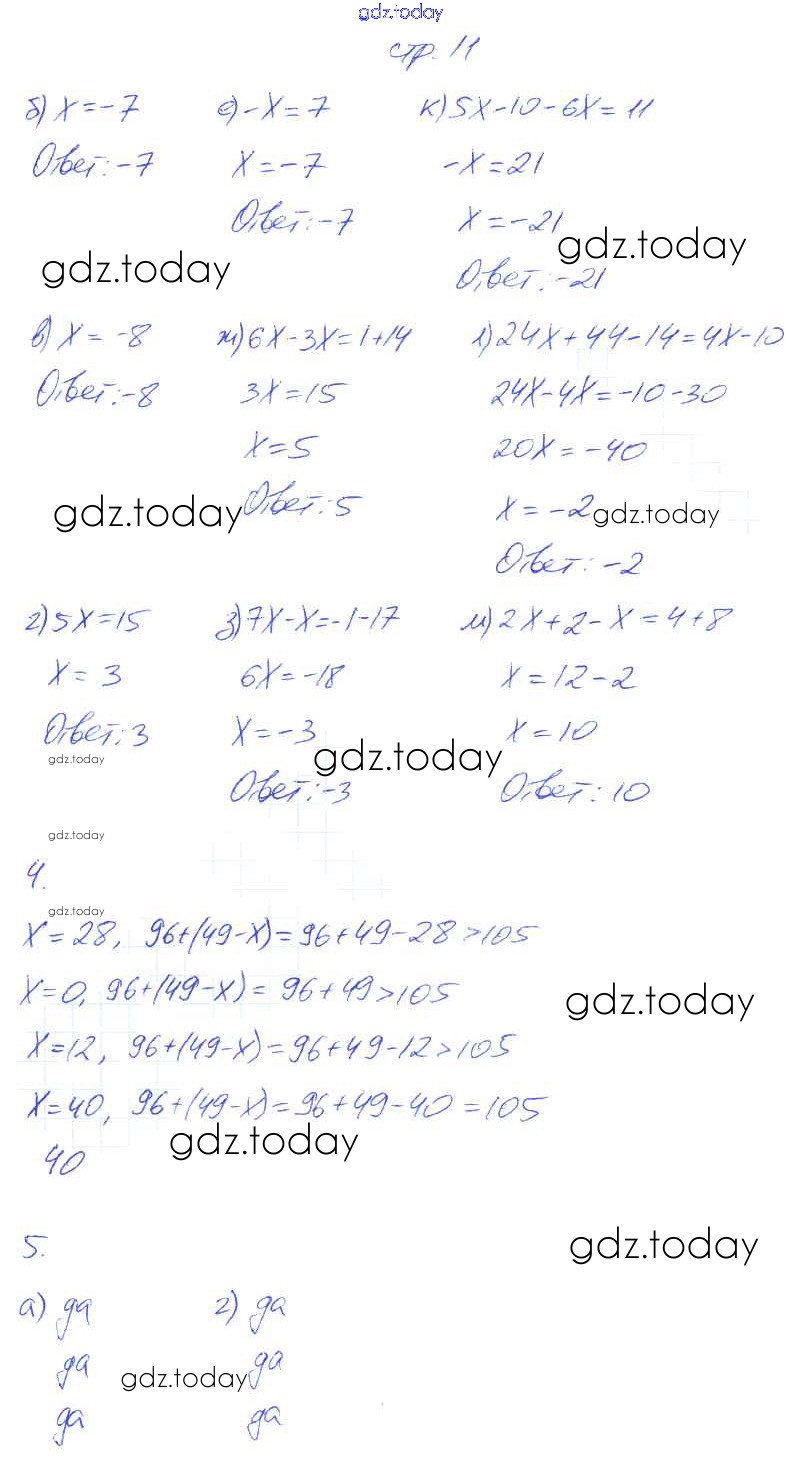 gdz.today
стр. 11
б) x = -7 е) -x = 7 к) 5x - 10 - 6x = 11
Ответ: -7 x = -7 -x = 21
Ответ: -7 x = -21
gdz.today gdz.today
Ответ: -21
в) x = -8 ж) 6x - 3x = 1 + 14 л) 24x + 44 - 14 = 4x - 10
Ответ: -8 3x = 15 24x - 4x = -10 - 30
x = 5 20x = -40
gdz.today Ответ: 5 x = -2 gdz.today
Ответ: -2
г) 5x = 15 з) 7x - x = -1 - 17 м) 2x + 2 - x = 4 + 8
x = 3 6x = -18 x = 12 - 2
Ответ: 3 x = -3 x = 10
gdz.today gdz.today
Ответ: -3 Ответ: 10
gdz.today
4.
gdz.today
x = 28, 96 + (49 - x) = 96 + 49 - 28 > 105
x = 0, 96 + (49 - x) = 96 + 49 > 105
gdz.today
x = 12, 96 + (49 - x) = 96 + 49 - 12 > 105
x = 40, 96 + (49 - x) = 96 + 49 - 40 = 105
gdz.today
40
5.
gdz.today
а) да г) да
да да
gdz.today
да да